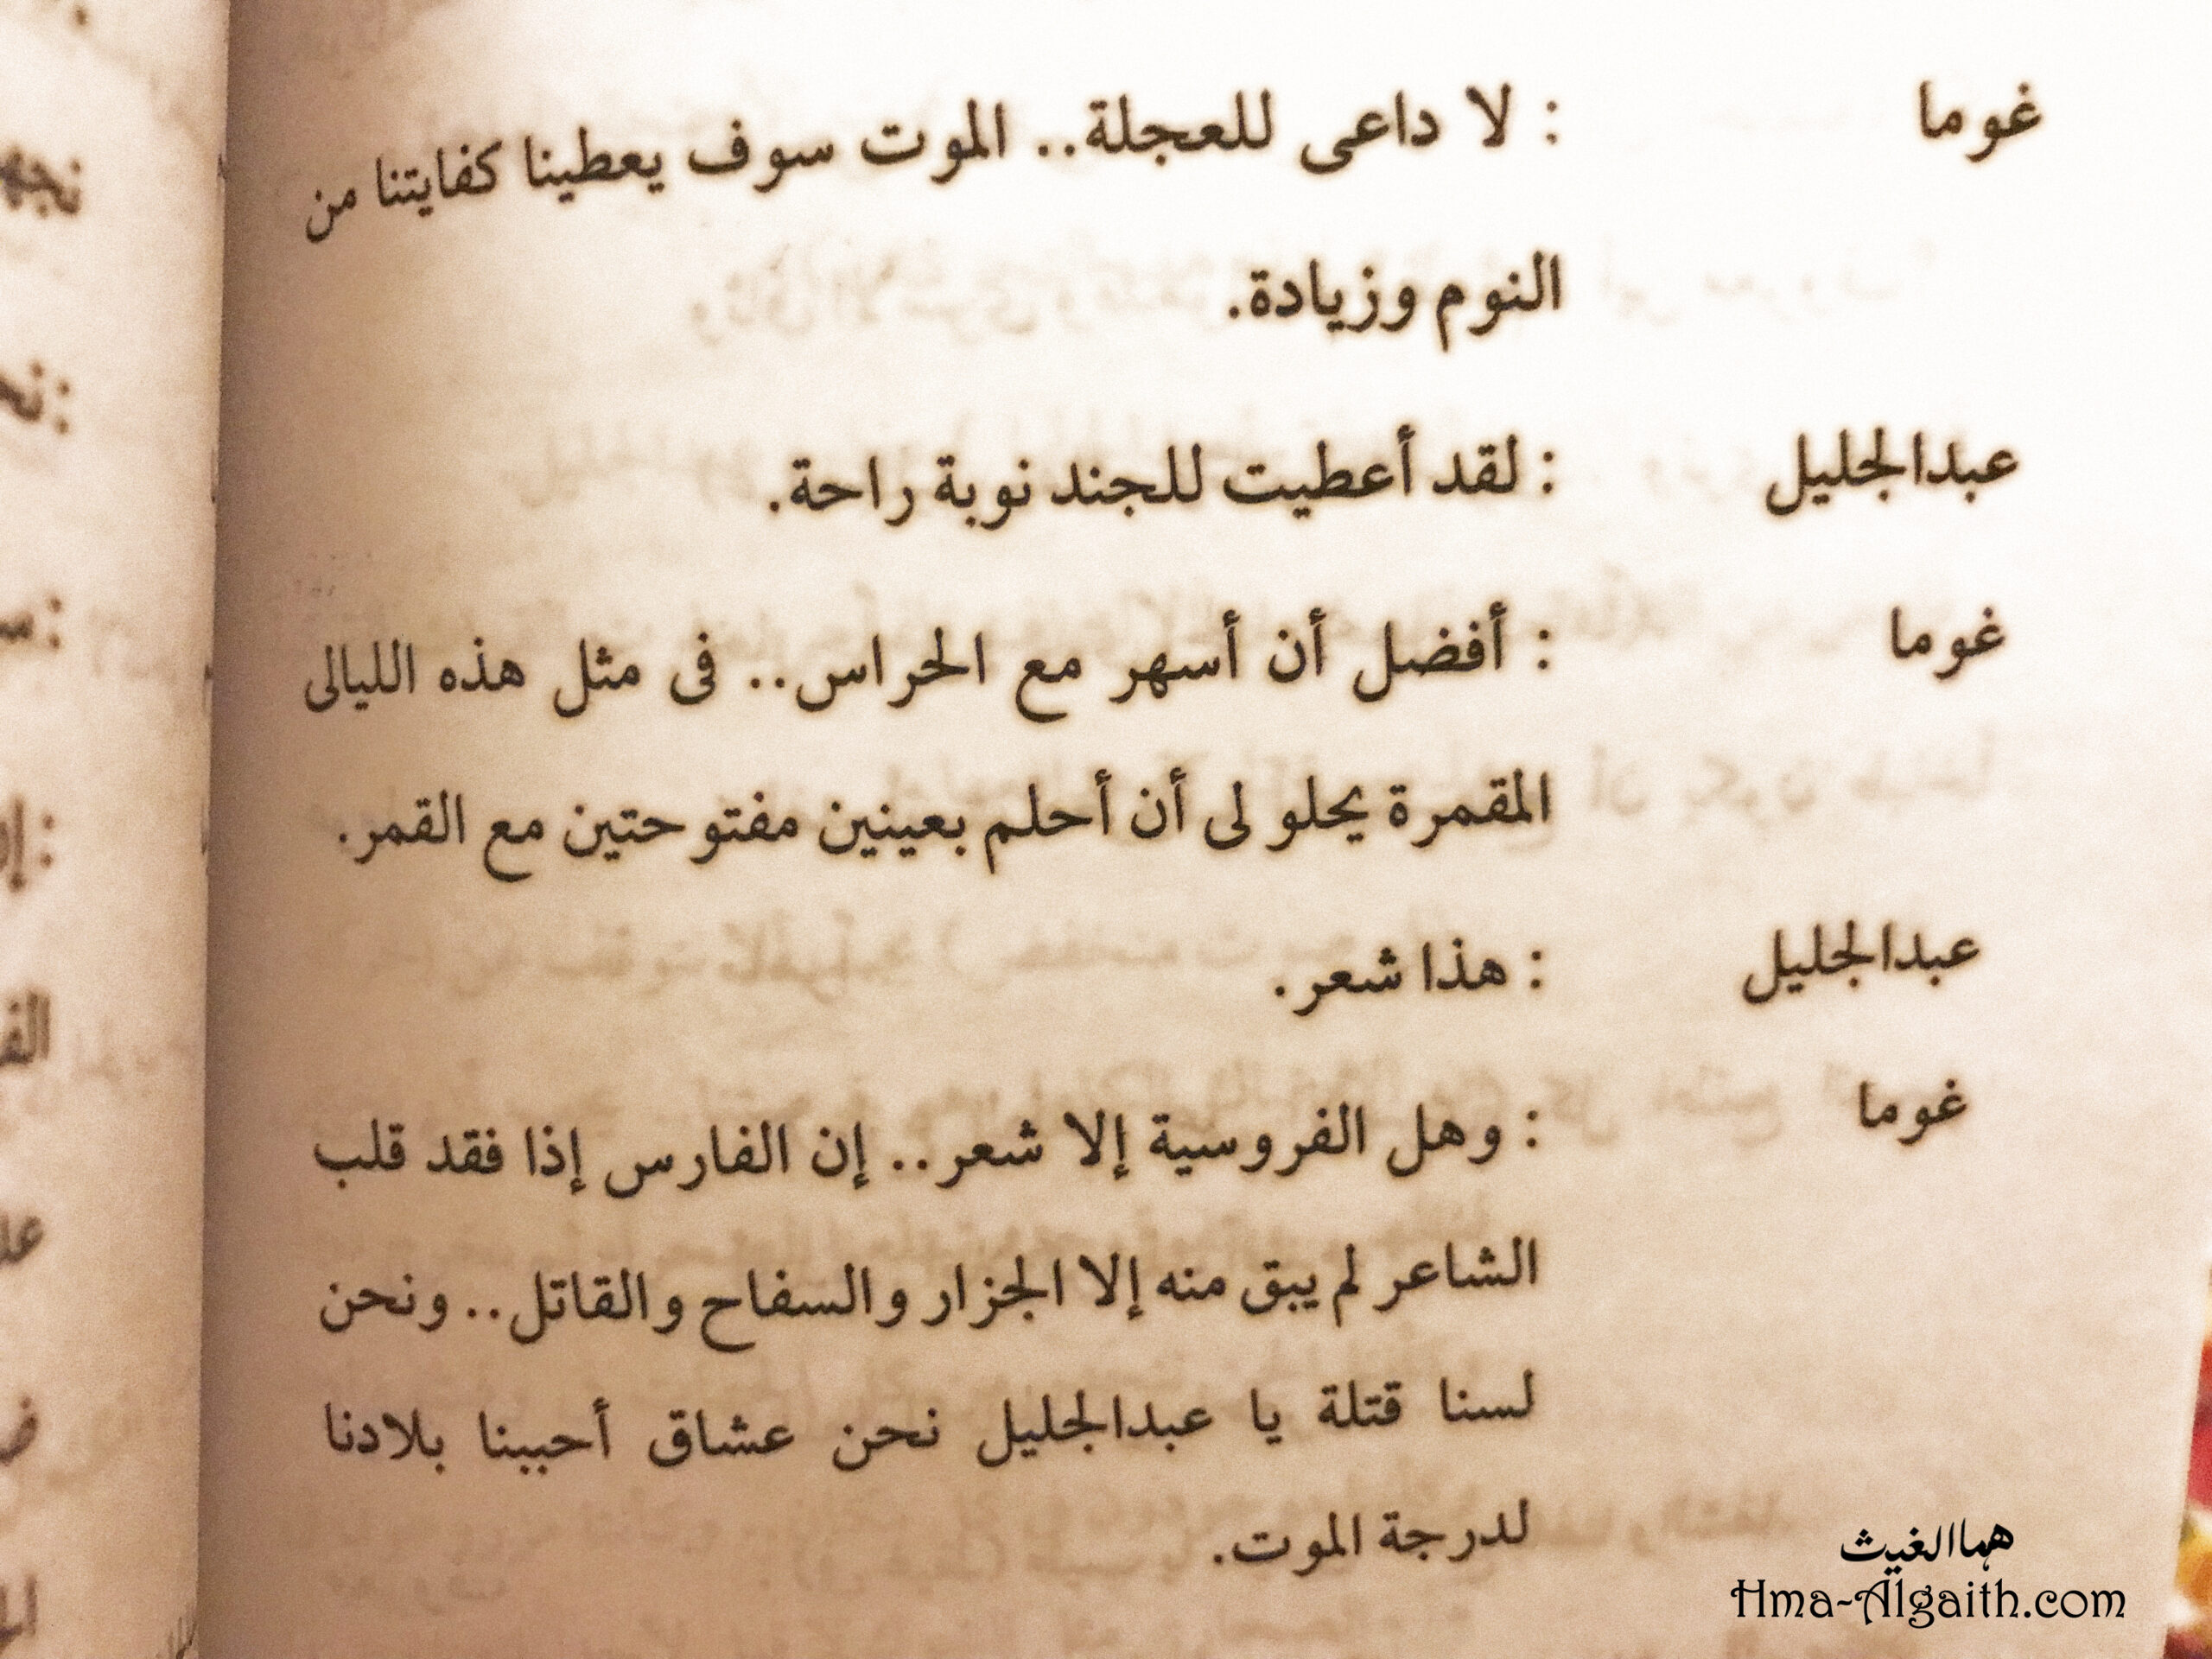 غوما : لا داعى للعجلة.. الموت سوف يعطينا كفايتنا من
النوم وزيادة.
عبدالجليل : لقد أعطيت للجند نوبة راحة.
غوما : أفضل أن أسهر مع الحراس.. فى مثل هذه الليالى
المقمرة يحلو لى أن أحلم بعينين مفتوحتين مع القمر.
عبدالجليل : هذا شعر.
غوما : وهل الفروسية إلا شعر.. إن الفارس إذا فقد قلب
الشاعر لم يبق منه إلا الجزار والسفاح والقاتل.. ونحن
لسنا قتلة يا عبدالجليل نحن عشاق أحببنا بلادنا
لدرجة الموت.
هماالغيث
Hma-Algaith.com